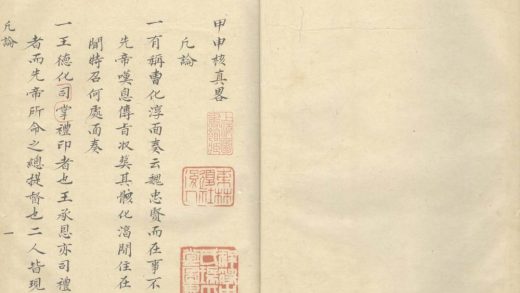 甲申核真畧
凡論
一有稱曹化淳面奏云魏忠賢而在事不
先帝嘆息傳旨收葬其骸化淳閒住在
間時召何處面奏
一王德化司掌禮印者也王承恩亦司禮
者而先帝所命之總提督也二人皆現
凡論 一